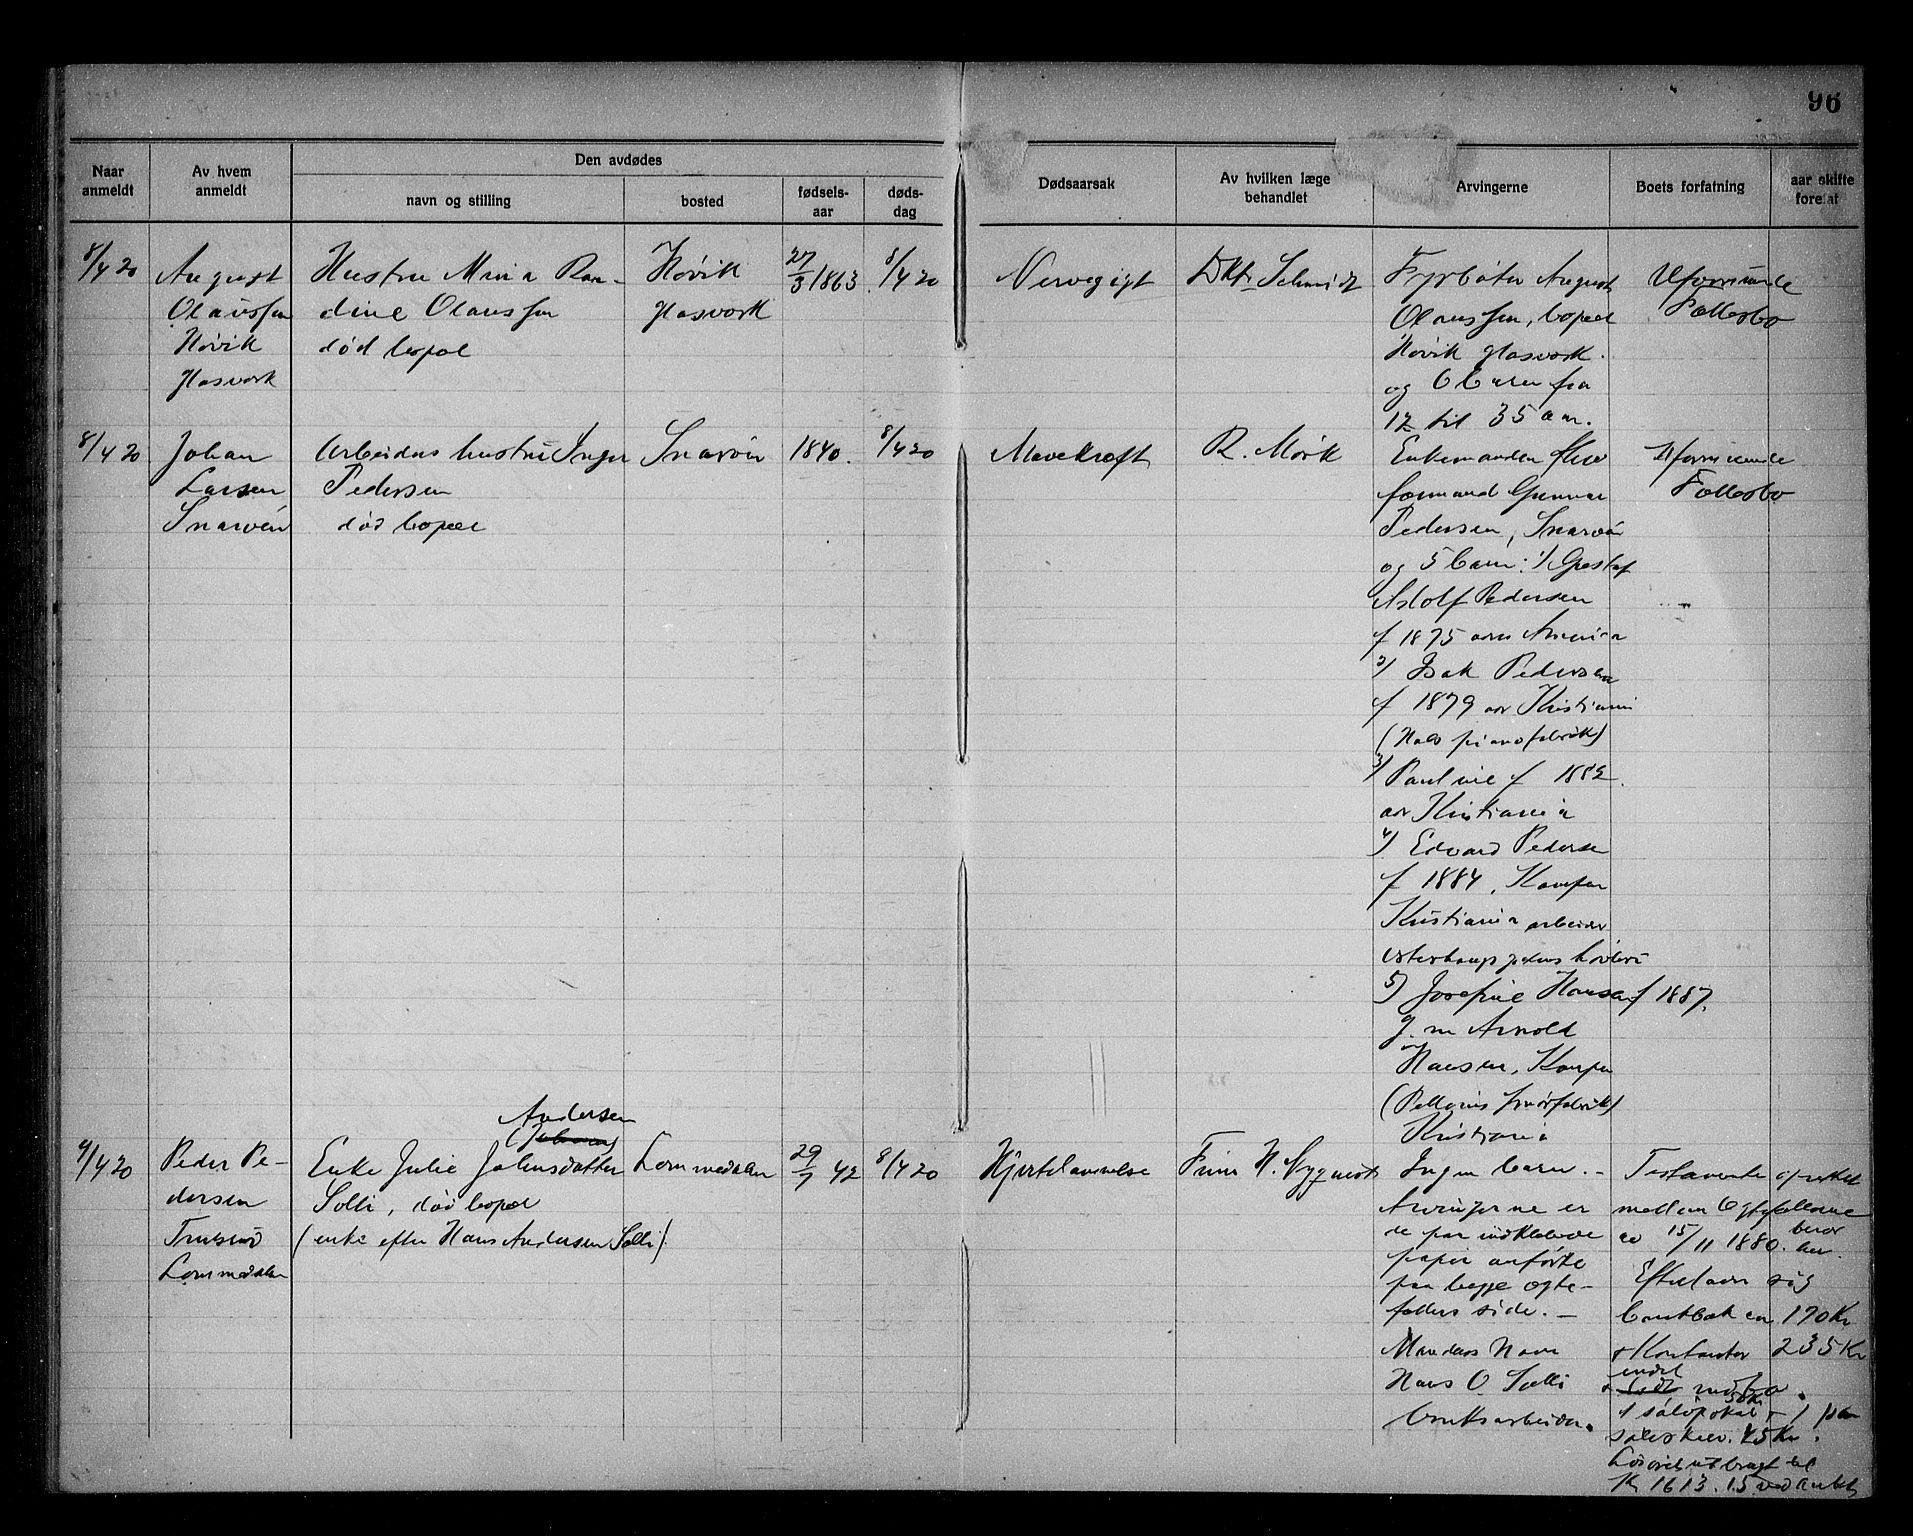 96
Naar anmeldt
Av hvem anmeldt
Den avdødes
navn og stilling
bosted
fødsels-aar
døds-dag
Dødsaarsak
Av hvilken læge behandlet
Arvingerne
Boets forfatning
aar skifte foretat
8/4 20
August
Olaussen
Høvik
Glasverk
Hustru Mina Ran-
dine Olaussen
død bopæl
Høvik
Glasverk
27/3 1863
8/4 20
Nervegigt
Dktr Schmidt
Fyrbøter August
Olaussen, bopæl
Høvik glasverk.
og 6 barn fra
12 til 35 aar.
Uformuende
Fællesbo
8/4 20
Johan
Larsen
Snarøen
Arbeiders hustru Inger
Pedersen
død bopæl
Snarøen
1840.
8/4 20
Mavekræft
R. Mørk
Enkemanden
formand Gunnar
Pedersen, Snarøen
og 5 barn: 1/ Gustaf
Adolf Pedersen
f 1875 Amerika
2/ Isak Pedersen
f 1879 Kristiania
(Hals pianofabrik)
3/ Pauline f 1882.
Kristiania
4/ Edvard Pedersen
f 1884, Kampen
Kristiania arbeider
høvleri
5) Josefine Hansen f 1887.
g. m Arnold
Hansen, Kampen
(Pellerins smørfabrik)
Kristiania
9/4 20
Peder Pe-
dersen
Lommedalen
Andersen
Enke Julie Johnsdatter
Solli, død bopæl
(enke efter Hans Andersen Solli).
Lommedalen
29/7 42
8/4 20
Hjertelammelse
Finn H. Nyquist
Ingen barn. –
Arvingerne er
de paa indklebede
papir anførte
paa begge egte-
fællers side. –
Mandens Navn
Hans O. Solli
bruksarbeider.
Testamente oprettet
mellem Egtefællerne
av 15/11 1880. beror her.
Efterlader sig
bankbok 170 Kr
+ Kontanter 235 Kr
endel indbo.
1 sølvpokal 50 Kr + 1
sølvskeer. 45 Kr.
Løsøret utbragt til
Kr 1613.15 ved auktion